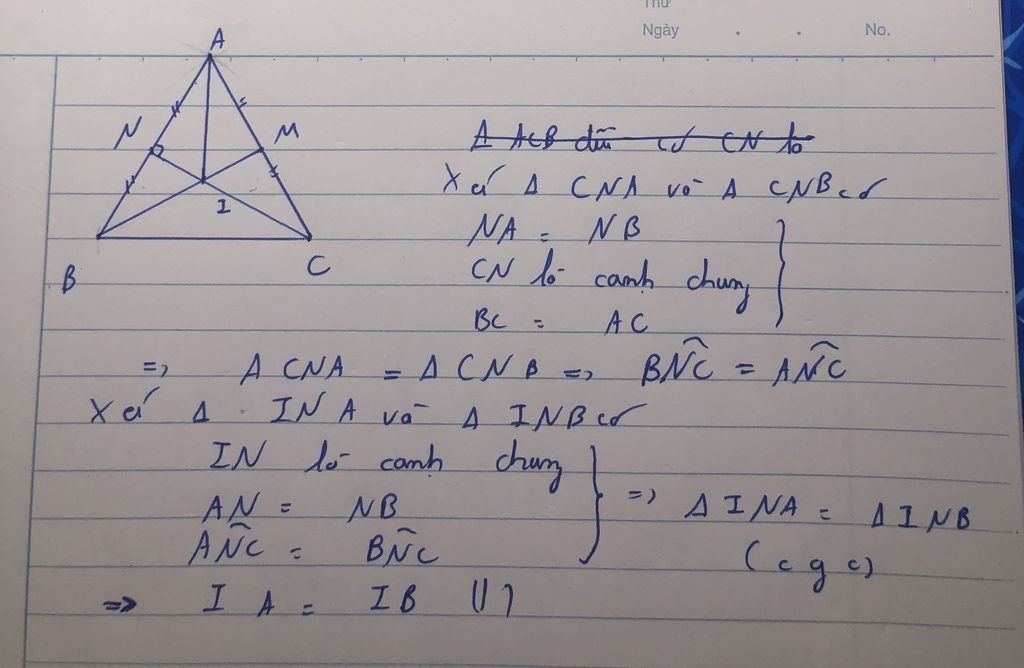 Thứ
Ngày . . No.
A
N
M
I
B
C
Δ ACB đều có CN là
Xét Δ CNA và Δ CNB có
NA = NB
CN là cạnh chung
BC = AC
=> Δ CNA = Δ CNB => BN̂C = AN̂C
Xét Δ INA và Δ INB có
IN là cạnh chung
AN = NB
AN̂C = BN̂C
=> Δ INA = Δ INB
(c g c)
=> IA = IB (1)